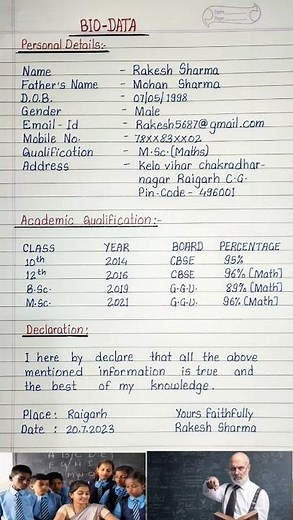 BIO-DATA
Personal Details:-
Name - Rakesh Sharma
Father's Name - Mohan Sharma
D.O.B. - 07/05/1998
Gender - Male
Email-Id - Rakesh5687@gmail.com
Mobile No. - 78XX83XX02
Qualification - M.Sc.(Maths)
Address - Kelo vihar chakradhar-
nagar Raigarh C.G.
Pin-Code- 496001
Academic Qualification:-
CLASS YEAR BOARD PERCENTAGE
10th 2014 CBSE 95%
12th 2016 CBSE 96% [Math]
B.Sc. 2019 G.G.U. 89% [Math]
M.Sc. 2021 G.G.U. 96% [Math]
Declaration:
I here by declare that all the above
mentioned information is true and
the best of my knowledge.
Place: Raigarh Yours Faithfully
Date : 20.7.2023 Rakesh Sharma